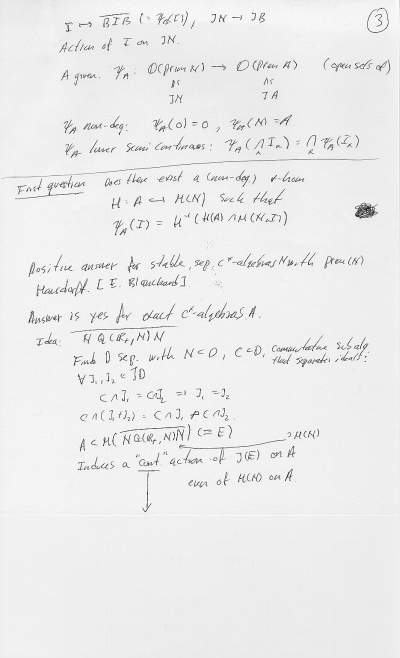 3
I ↦ \overline{BIB} (= Ψ_B(I)), IN → IB
Action of I on IN.
A given. Ψ_A: O(prim N) → O(prim A) (open sets of)
IN IA
Ψ_A non-deg: Ψ_A(0) = 0, Ψ_A(N) = A
Ψ_A lower semi continuous: Ψ_A(∩ I_α) = ∩ Ψ_A(I_α)
First question Does there exist a (non-deg) *-hom
H: A ↪ M(N) such that
Ψ_A(I) = H^{-1}(H(A) ∩ M(N, I))
Positive answer for stable, sep, C*-algebras N with prim(N)
Hausdorff. [E. Blanchard].
Answer is yes for exact C*-algebras A.
Idea: \overline{N Q(R_+, N) N}
Find D sep. with N ⊂ D, C ⊂ D, commutative subalg
that separates ideals:
∀ J_1, J_2 ∈ ID
C ∩ J_1 = C ∩ J_2 ⇒ J_1 = J_2
C ∩ (J_1 + J_2) = C ∩ J_1 + C ∩ J_2
A ⊂ M(\overline{N Q(R_+, N) N}) (= E)
⊃ M(N)
Induces a "cont" action of I(E) on A
even of M(N) on A